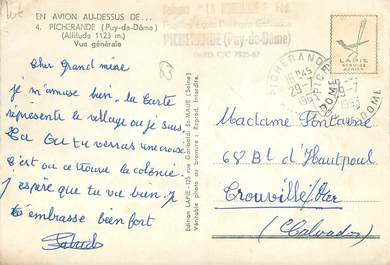 EN AVION AU-DESSUS DE...
4. PICHERANDE (Puy-de-Dôme)
(Altitude 1123 m.)
Vue générale
Cher Grand mère
je m'amuse bien. la carte
représente le village ou je suis.
La Ou tu verras une croix
C'est ou ce trouve la colonie.
J'espère que tu vas bien. Je
t'embrasse bien fort
Edition LAPIE - 123 rue Garibaldi St-MAUR (Seine)
Véritable photo au bromure - Reprod. Interdite.
PICHERANDE (Puy-de-Dôme)
PICHERANDE
16H45
29-7
1963
PUY DE DOME
LAPIE
SERVICE AERIEN
Madame Fontaine
68 Bd d'Hautpoul
Trouville s/Mer
(Calvados)